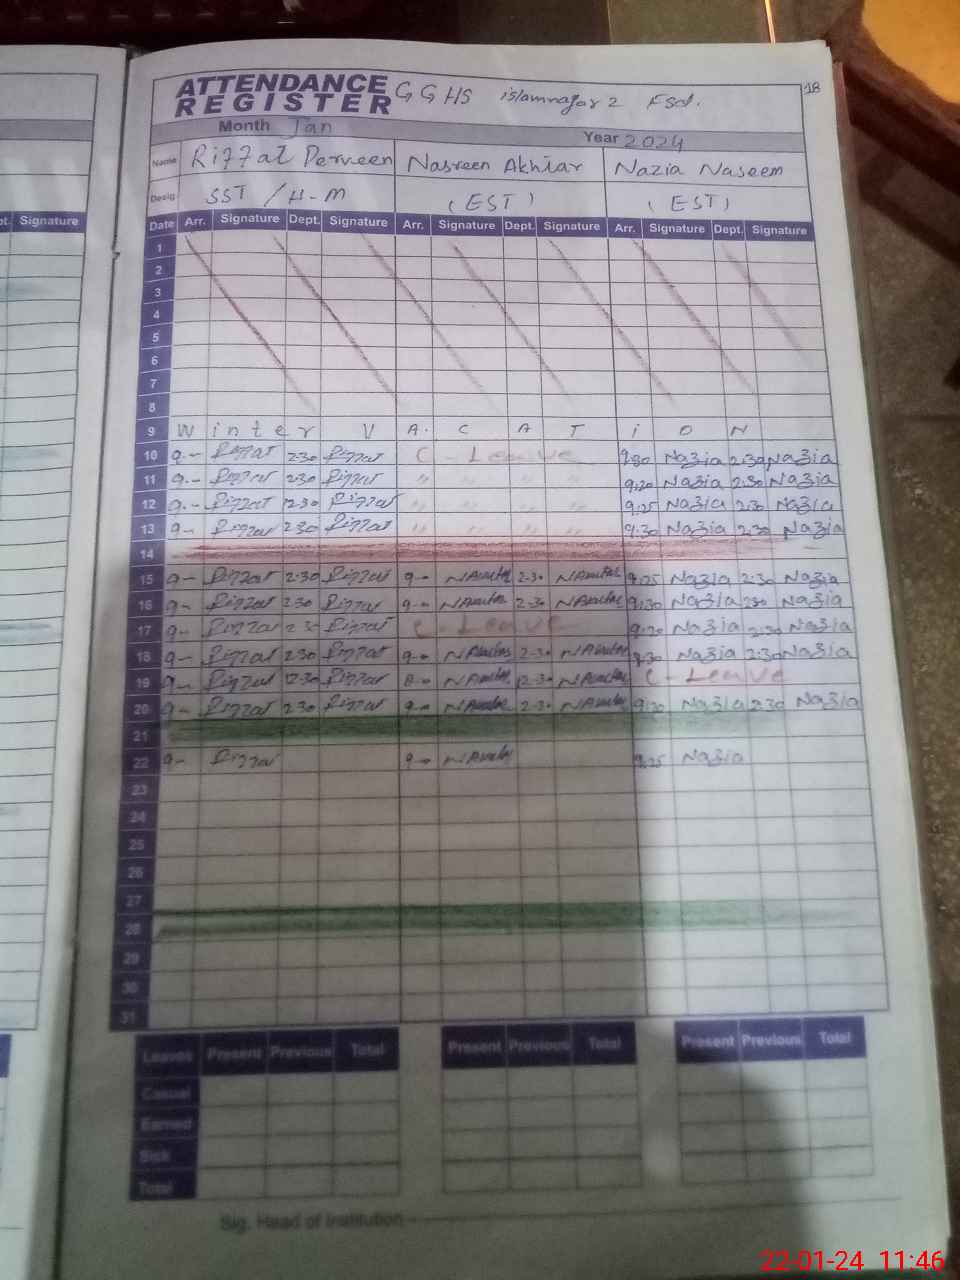 ATTENDANCE REGISTER GGHS islamnagar 2 Fsd. 18
Month Jan Year 2024
Name Riffat Perveen Nasreen Akhtar Nazia Naseem
Desig. SST / H-M (EST) (EST)
pt. Signature
Date Arr. Signature Dept. Signature Arr. Signature Dept. Signature Arr. Signature Dept. Signature
1
2
3
4
5
6
7
8
9 W i n t e r V A. C A T i O N
10 9-- Riffat 2-30 Riffat C - Leave 9:30 Nazia 2:30 Nazia
11 9-- Riffat 2-30 Riffat " " " " 9:20 Nazia 2:30 Nazia
12 9-- Riffat 2-30 Riffat " " " " 9:25 Nazia 2:30 Nazia
13 9-- Riffat 2-30 Riffat " " " " 9:30 Nazia 2:30 Nazia
14
15 9-- Riffat 2-30 Riffat 9-0 NAkhtar 2-30 NAkhtar 9:25 Nazia 2:30 Nazia
16 9-- Riffat 2-30 Riffat 9-0 NAkhtar 2-30 NAkhtar 9:30 Nazia 2:30 Nazia
17 9-- Riffat 2-30 Riffat C - Leave 9:20 Nazia 2:30 Nazia
18 9-- Riffat 2-30 Riffat 9-0 NAkhtar 2-30 NAkhtar 9:30 Nazia 2:30 Nazia
19 9-- Riffat 12-30 Riffat NAkhtar 12-30 NAkhtar C - Leave
20 9-- Riffat 2-30 Riffat 9-0 NAkhtar 2-30 NAkhtar 9:30 Nazia 2:30 Nazia
21
22 9-- Riffat 9-0 NAkhtar 9:25 Nazia
23
24
25
26
27
28
29
30
31
Leaves Present Previous Total Present Previous Total Present Previous Total
Casual
Earned
Sick
Total
Sig. Head of Institution
22-01-24 11:46